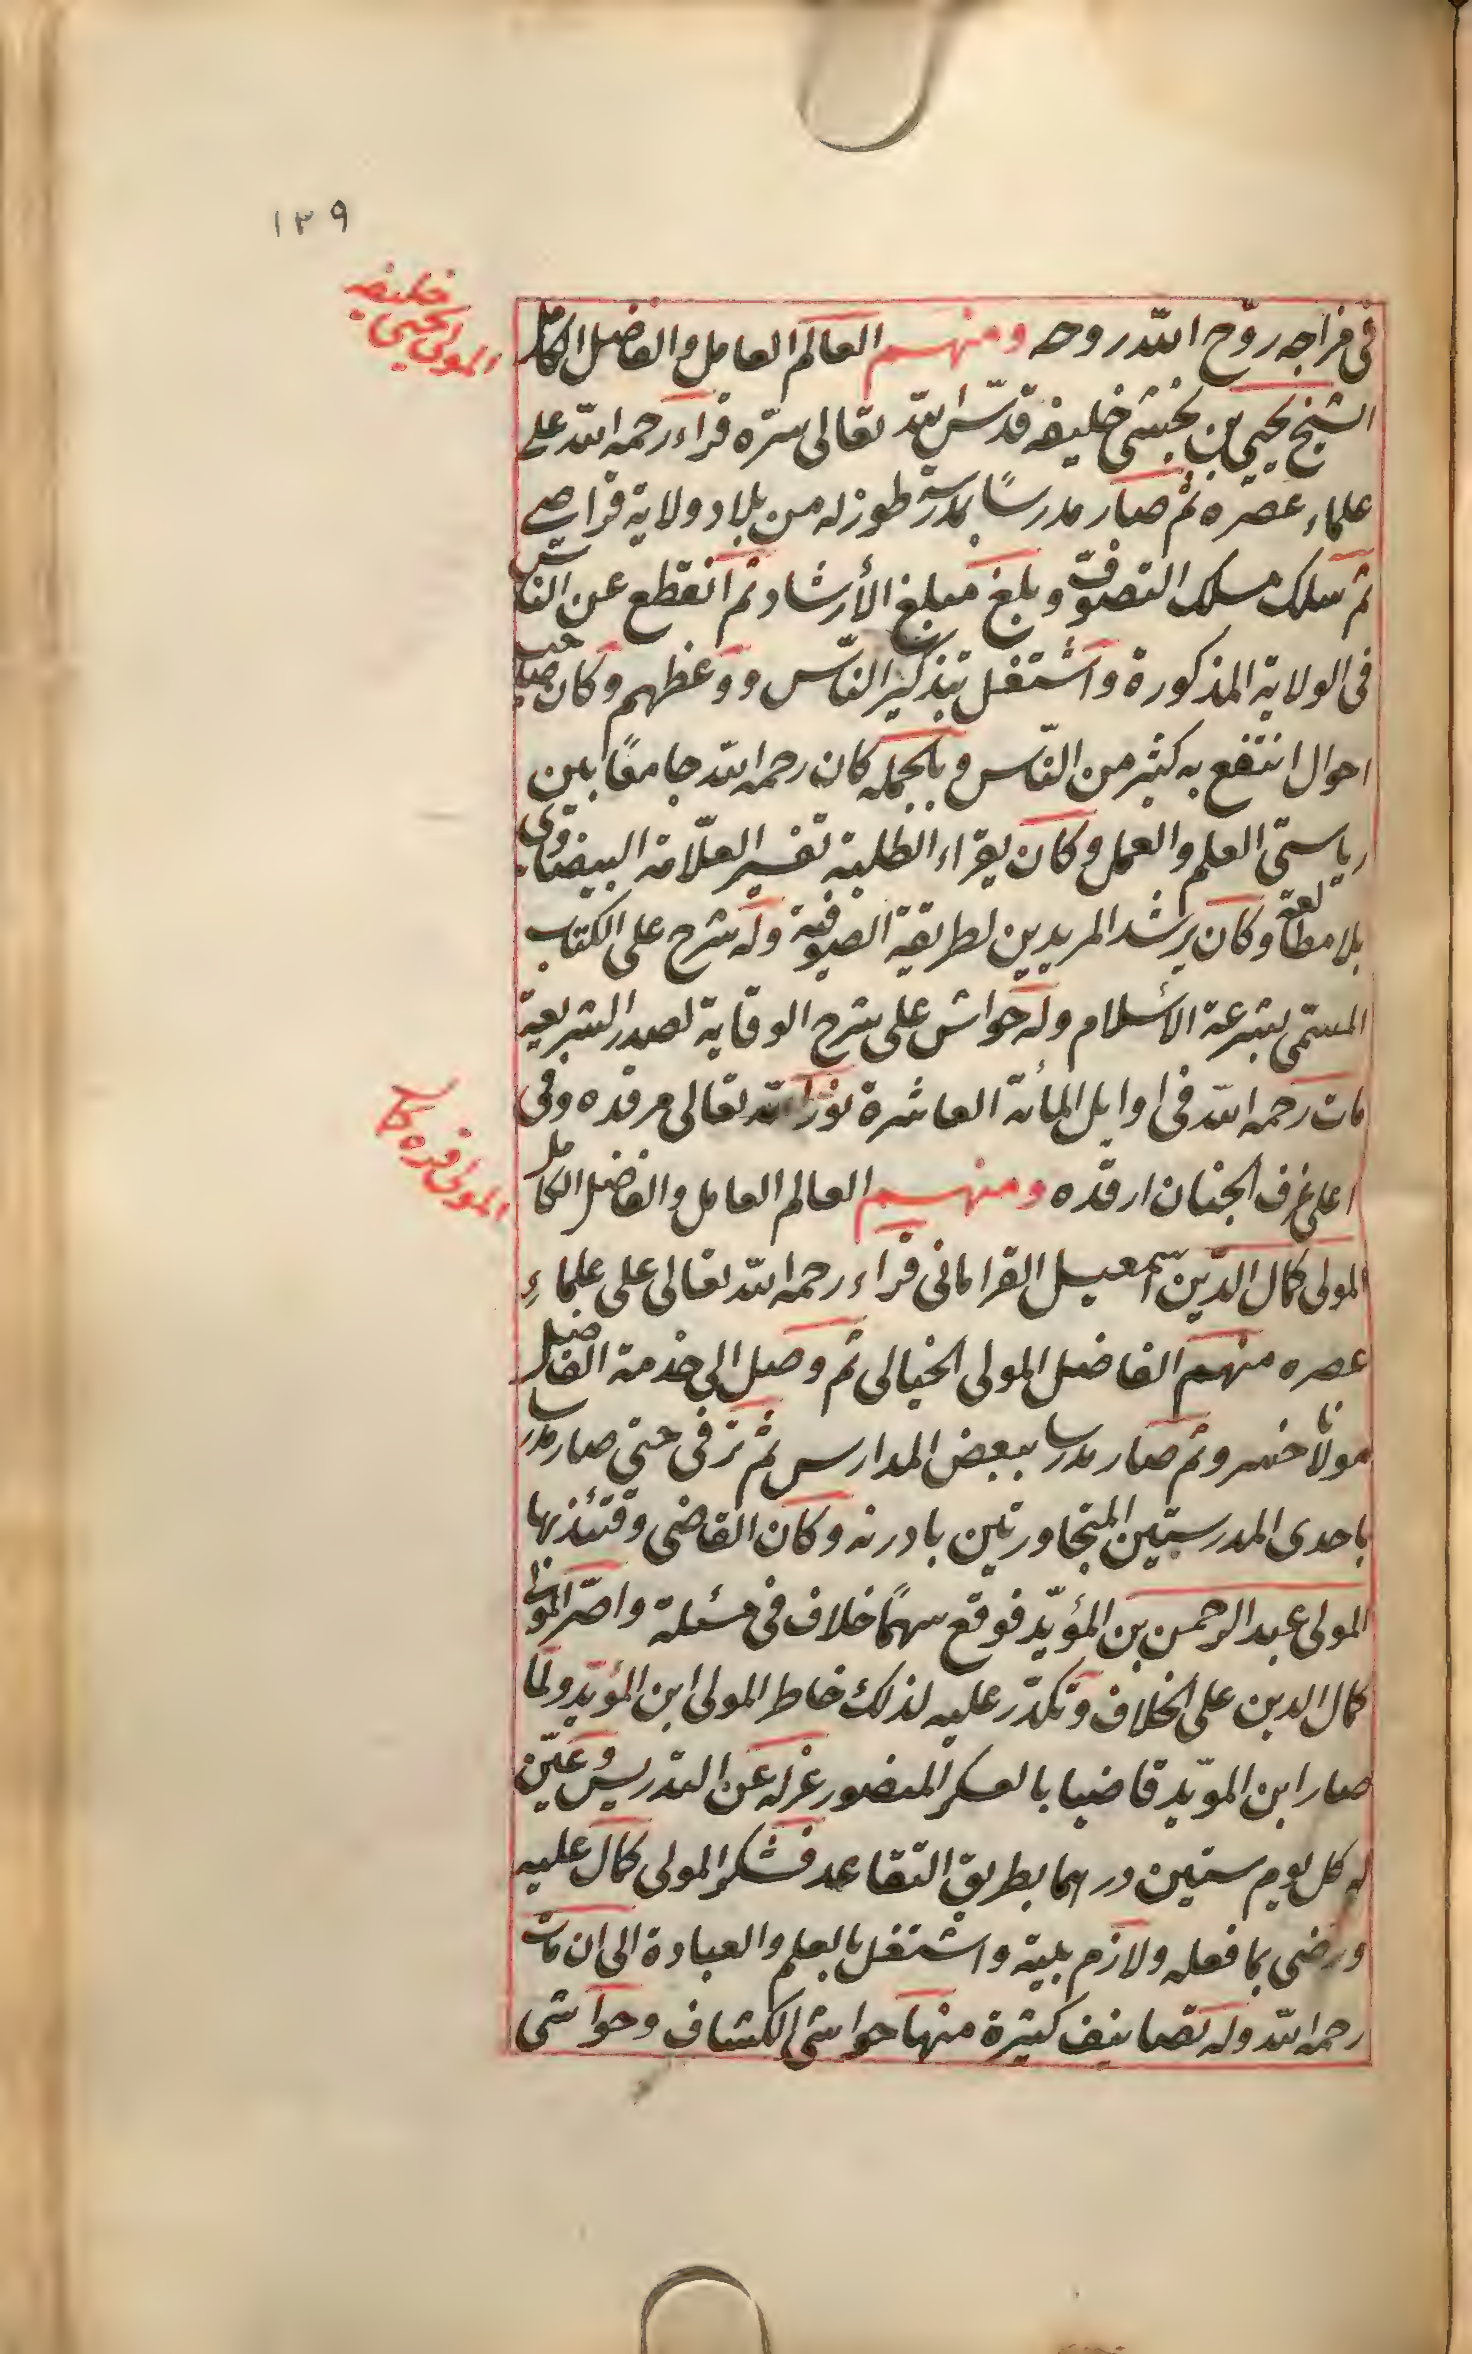 ١٣٩
خليفه
المولى يحيى
فى مزاجه روّح الله روحه ومنهم العالم العامل والفاضل الكامل
الشيخ يحيى بن بخشى خليفه قدّس الله تعالى سرّه قراء رحمه الله على
علماء عصره ثم صار مدرسًا بمدرسة طوزله من بلاد ولاية قراصى
ثم سلك مسلك التصوّف وبلغ مبلغ الأرشاد ثم انقطع عن الناس
فى الولاية المذكورة واشتغل بتذكير النّاس ووعظهم وكان صاحب
احوال انتفع به كثير من النّاس وبالجمله كان رحمه الله جامعًا بين
رياستى العلم والعمل وكان يقراء الطلبة تفسير العلّامة البيضاوى
بلا مطالعة وكان يرشد المريدين لطريقة الصوفية وله شرح على الكتاب
المسمّى بشرعة الأسلام وله حواش على شرح الوقاية لصدر الشريعة
مات رحمه الله فى اوايل المأئة العاشرة نوّر الله تعالى مرقده وفى
اعلى غرف الجنان ارقده ومنهم العالم العامل والفاضل الكامل
المولى قره كمال
المولى كمال الدّين اسمعيل القرامانى قراء رحمه الله تعالى على علماءِ
عصره منهم الفاضل المولى الخيالى ثم وصل الى خدمة الفاضل
مولانا خسرو ثم صار مدرسا ببعض المدارس ثم ترقى حتى صار مدرسا
باحدى المدرستين المتجاورتين بادرنه وكان القاضى وقتئذ بها
المولى عبد الرحمن بن المؤيّد فوقع بينهما خلاف فى مسئلة واصرّ المولى
كمال الدين على الخلاف وتكدّر عليه لذلك خاطر المولى ابن المؤيّد ولما
صار ابن المويّد قاضيا بالعسكر المنصور عزله عن التدريس وعيّن
له كل يوم ستين درهما بطريق التقاعد فشكر المولى كمال عليه
ورضى بما فعله ولازم بيته واشتغل بالعلم والعبادة الى ان مات
رحمه الله وله تصانيف كثيرة منها حواشى الكشاف وحواشى